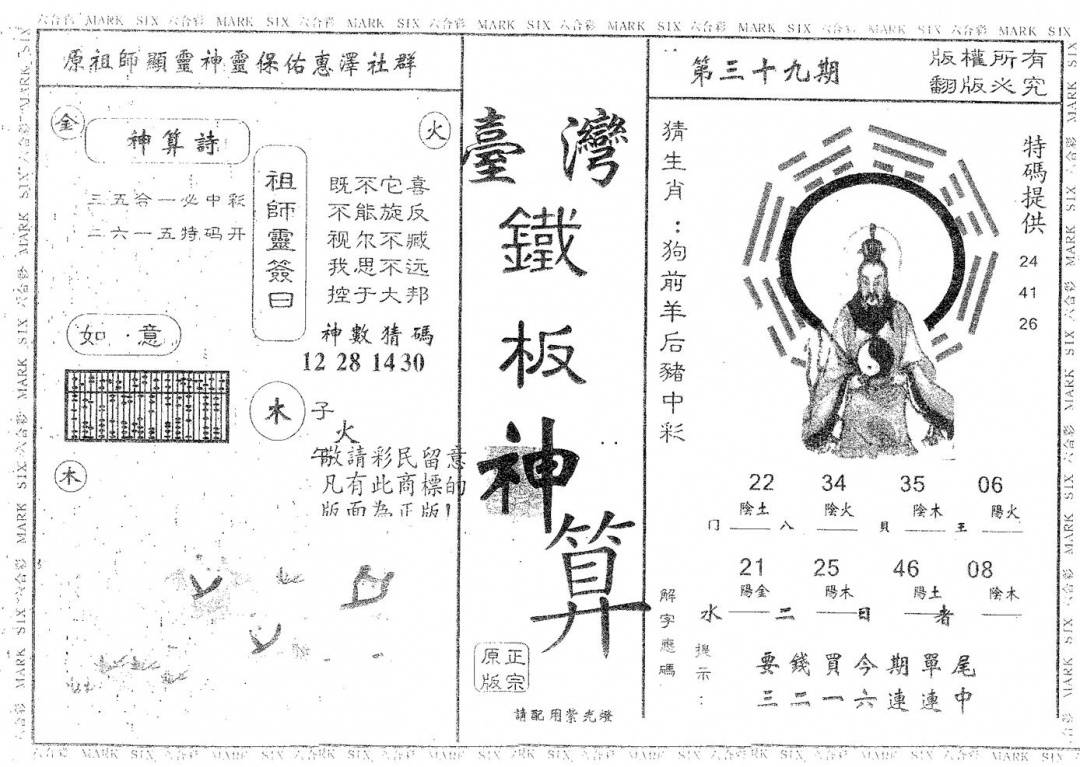 六合彩 MARK SIX 六合彩 MARK SIX 六合彩 MARK SIX 六合彩 MARK SIX 六合彩 MARK SIX 六合彩 MARK SIX 六合彩 MARK SIX 六合彩 MARK SIX
原祖師顯靈神靈保佑惠澤社群
金
神算詩
火
三五合一必中彩
二六一五特码开
祖師靈簽曰
既不它喜
不能旋反
视尔不臧
我思不远
控于大邦
神數猜碼
12 28 14 30
如·意
木
子
火
午
木
敬請彩民留意
凡有此商標的
版面為正版!
臺灣
鐵
板
神
算
正宗
原版
請配用紫光燈
第三十九期
版權所有
翻版必究
猜生肖:狗前羊后豬中彩
特碼提供
24
41
26
22 34 35 06
陰土 陰火 陰木 陽火
门 八 貝 王
21 25 46 08
陽金 陽木 陽土 陰木
水 二 日 者
解字應碼
提示:
要錢買今期單尾
三二一六連連中
六合彩 MARK SIX 六合彩 MARK SIX 六合彩 MARK SIX 六合彩 MARK SIX 六合彩 MARK SIX 六合彩 MARK SIX 六合彩 MARK SIX 六合彩 MARK SIX